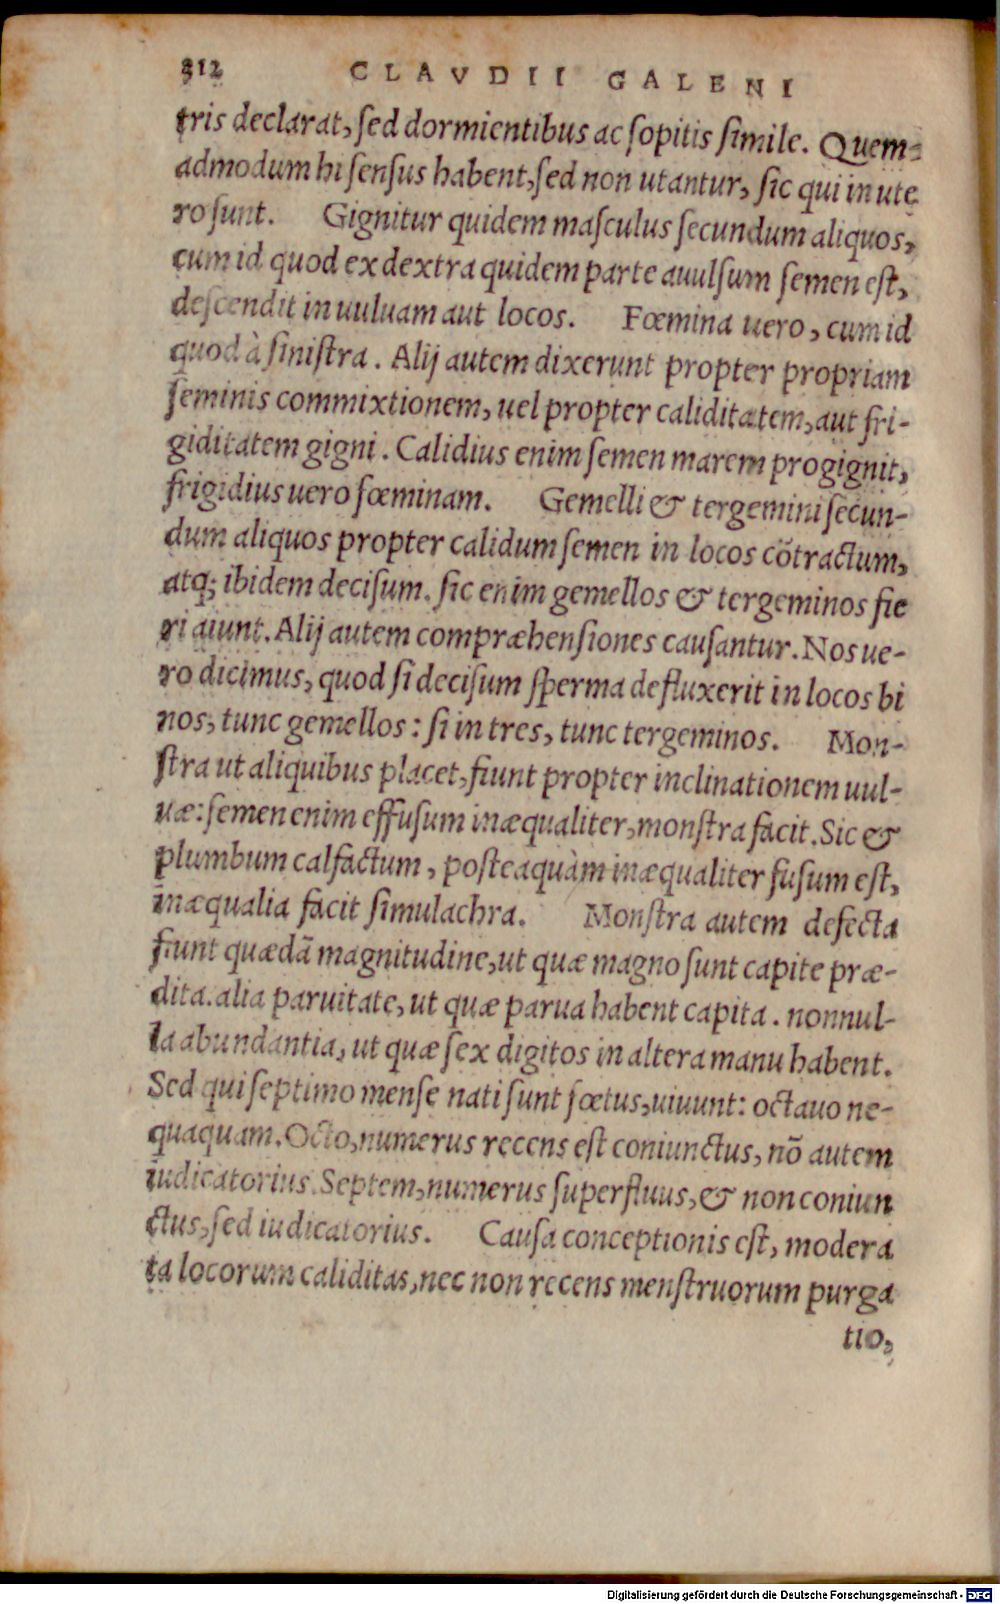 312 CLAVDII GALENI
tris declarat, ſed dormientibus ac ſopitis ſimile. Quem-
admodum hi ſenſus habent, ſed non utantur, ſic qui in ute
ro ſunt. Gignitur quidem maſculus ſecundum aliquos,
cum id quod ex dextra quidem parte auulſum ſemen eſt,
deſcendit in uuluam aut locos. Fœmina uero, cum id
quod à ſiniſtra. Alij autem dixerunt propter propriam
ſeminis commixtionem, uel propter caliditatem, aut fri-
giditatem gigni. Calidius enim ſemen marem progignit,
frigidius uero fœminam. Gemelli & tergemini ſecun-
dum aliquos propter calidum ſemen in locos cōtractum,
atq; ibidem deciſum. ſic enim gemellos & tergeminos fie
ri aiunt. Alij autem compræhenſiones cauſantur. Nos ue-
ro dicimus, quod ſi deciſum ſperma defluxerit in locos bi
nos, tunc gemellos: ſi in tres, tunc tergeminos. Mon-
ſtra ut aliquibus placet, fiunt propter inclinationem uul-
uæ: ſemen enim effuſum inæqualiter, monſtra facit. Sic &
plumbum calfactum, poſteaquàm inæqualiter fuſum eſt,
inæqualia facit ſimulachra. Monſtra autem defecta
fiunt quædā magnitudine, ut quæ magno ſunt capite præ-
dita. alia paruitate, ut quæ parua habent capita. nonnul-
la abundantia, ut quæ ſex digitos in altera manu habent.
Sed qui ſeptimo menſe nati ſunt fœtus, uiuunt: octauo ne-
quaquam. Octo, numerus recens eſt coniunctus, nō autem
iudicatorius. Septem, numerus ſuperfluus, & non coniun
ctus, ſed iudicatorius. Cauſa conceptionis eſt, modera
ta locorum caliditas, nec non recens menſtruorum purga
tio,
Digitalisierung gefördert durch die Deutsche Forschungsgemeinschaft - DFG